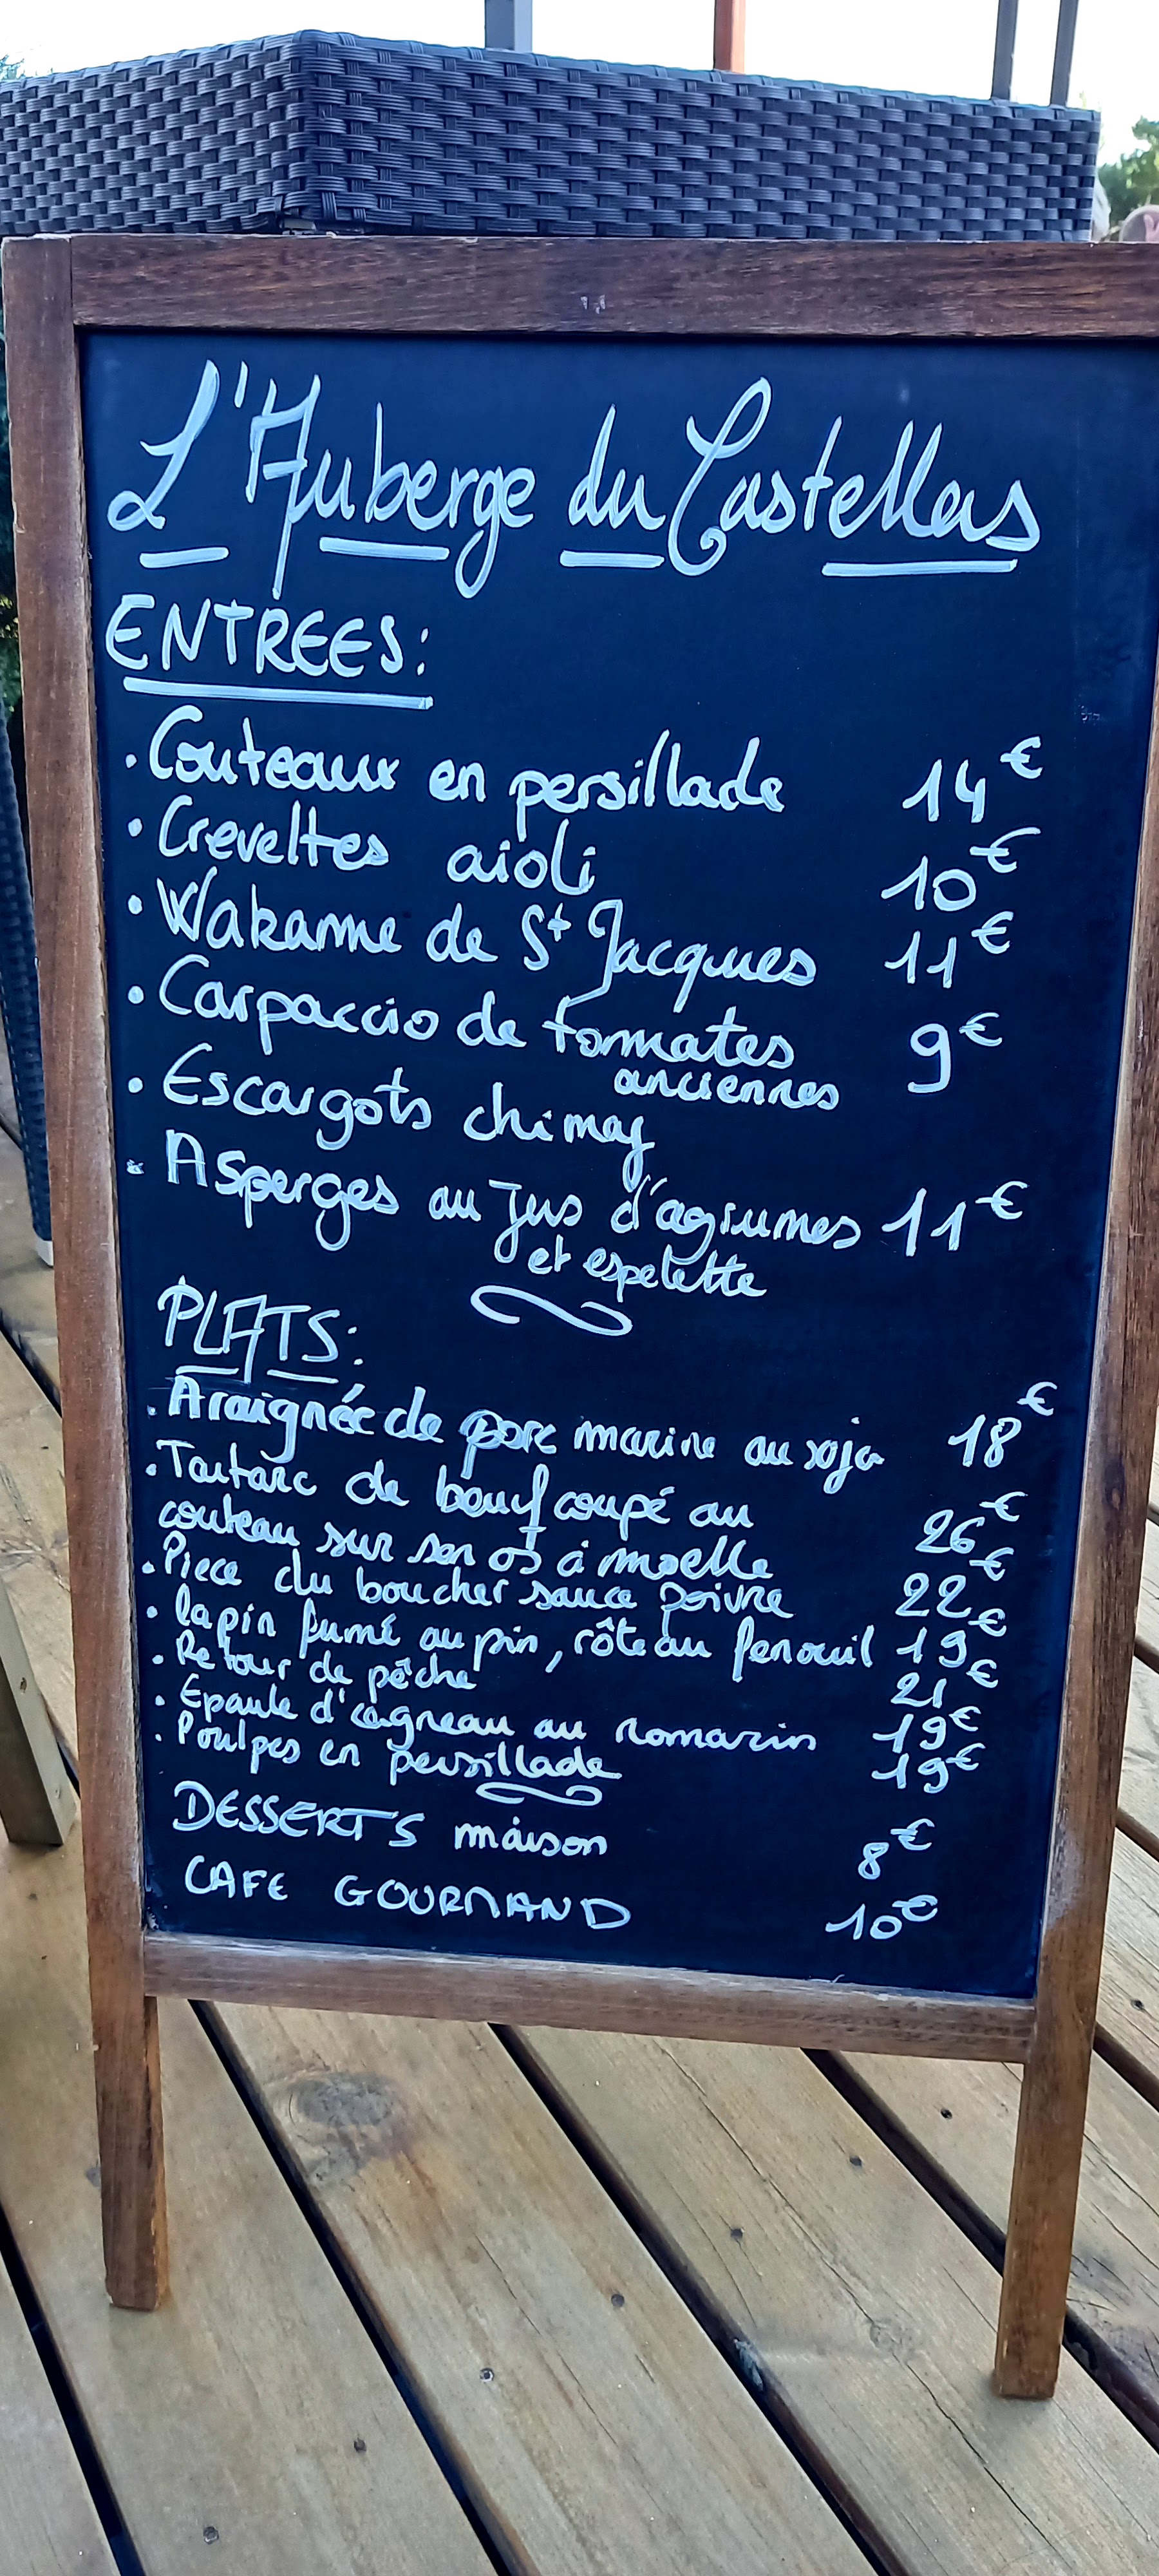 L'Auberge du Castellas
ENTREES:
. Couteaux en persillade 14€
. Crevettes aioli 10€
. Wakame de St Jacques 11€
. Carpaccio de tomates 9€
anciennes
. Escargots chimay
. Asperges au jus d'agrumes 11€
et espelette
PLATS:
. Araignée de porc marine au soja 18€
. Tartare de bœuf coupé au
couteau sur son os à moelle 26€
. Piece du boucher sauce poivre 22€
. lapin fumé au pin, rôte au fenouil 19€
. Retour de pêche 21€
. Epaule d'agneau au romarin 19€
. Poulpes en persillade 19€
DESSERTS maison 8€
CAFE GOURMAND 10€